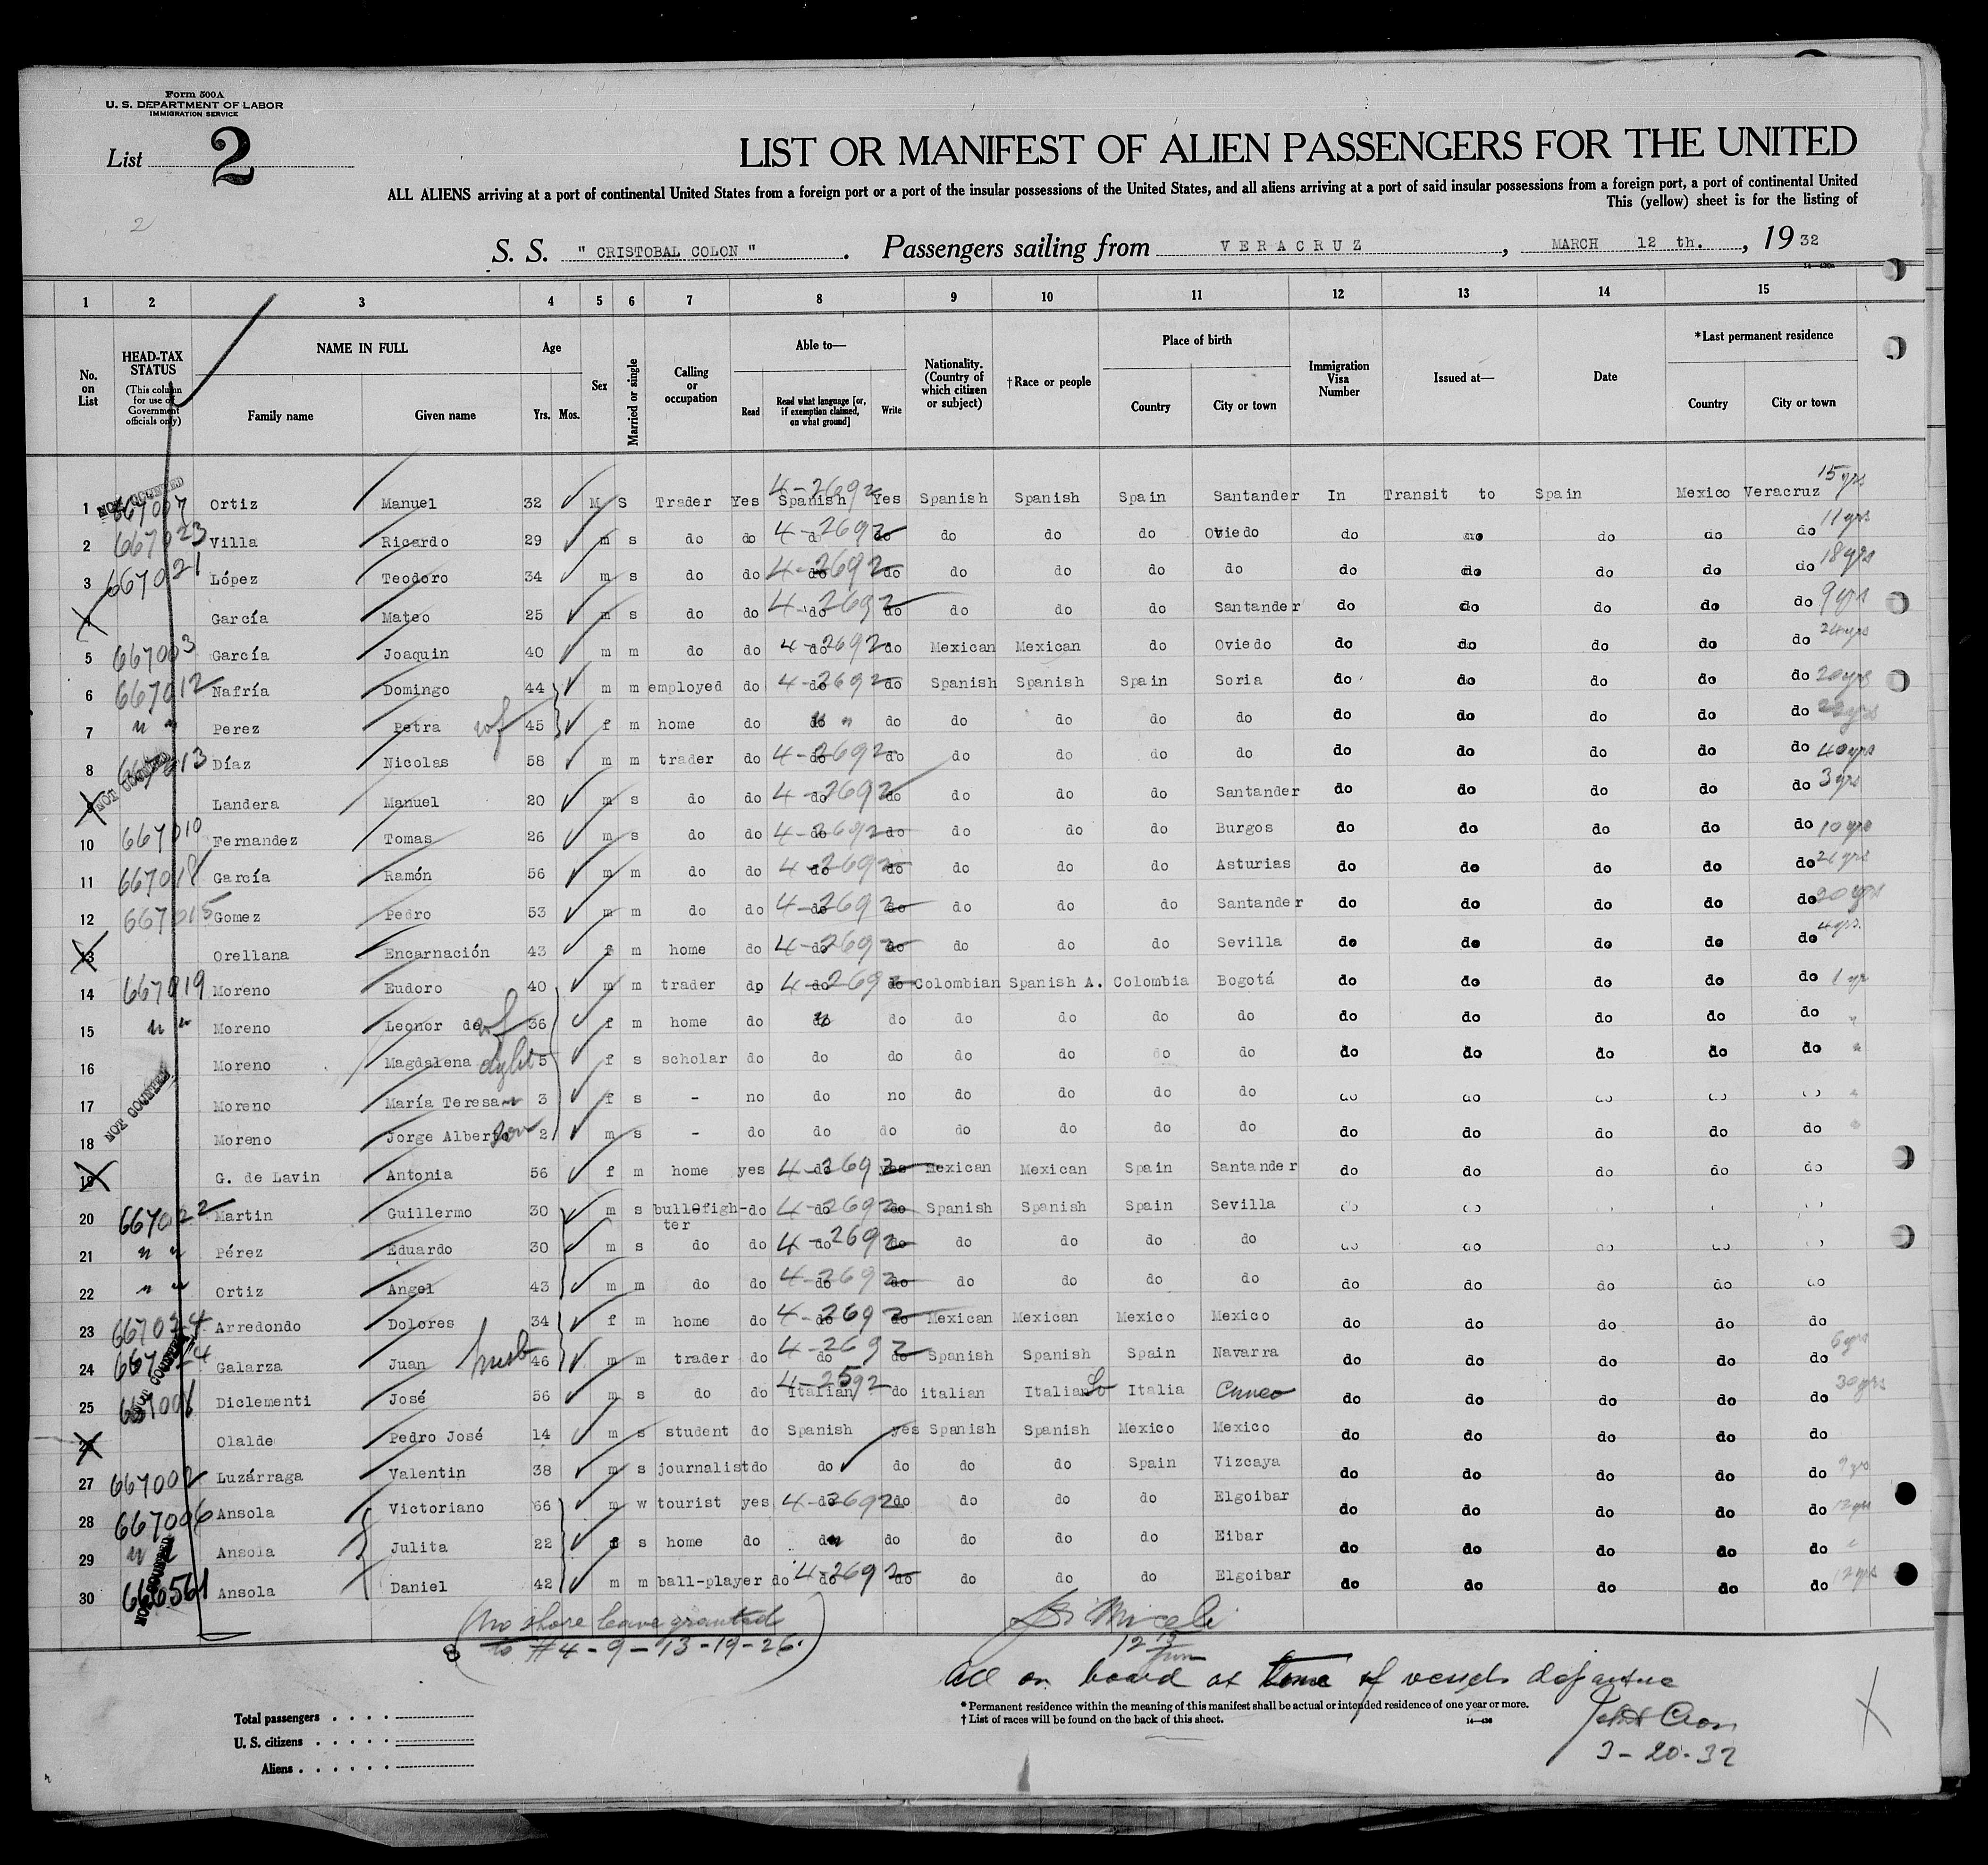 Form 500A
U. S. DEPARTMENT OF LABOR
IMMIGRATION SERVICE
List 2
2
LIST OR MANIFEST OF ALIEN PASSENGERS FOR THE UNITED
ALL ALIENS arriving at a port of continental United States from a foreign port or a port of the insular possessions of the United States, and all aliens arriving at a port of said insular possessions from a foreign port, a port of continental United
This (yellow) sheet is for the listing of
S. S. " CRISTOBAL COLON ". Passengers sailing from VERACRUZ, MARCH 12 th., 19 32
1 2 3 4 5 6 7 8 9 10 11 12 13 14 15
No. on List
HEAD-TAX STATUS (This column for use of Government officials only)
NAME IN FULL
Family name Given name
Age
Yrs. Mos.
Sex
Married or single
Calling or occupation
Able to—
Read Read what language [or, if exemption claimed, on what ground] Write
Nationality. (Country of which citizen or subject)
†Race or people
Place of birth
Country City or town
Immigration Visa Number
Issued at—
Date
*Last permanent residence
Country City or town
1 NOT COUNTED Ortiz Manuel 32 M S Trader Yes Spanish 4-2692 Yes Spanish Spanish Spain Santander In Transit to Spain Mexico Veracruz 15 yrs
2 667023 Villa Ricardo 29 m s do do do 4-2692 do do do do Oviedo do do do do do 11 yrs
3 667021 López Teodoro 34 m s do do do 4-2692 do do do do do do do do do do 18 yrs
4 García Mateo 25 m s do do do 4-2692 do do do do Santander do do do do do 9 yrs
5 667003 García Joaquin 40 m m do do do 4-2692 do Mexican Mexican do Oviedo do do do do do 24 yrs
6 667012 Nafría Domingo 44 m m employed do do 4-2692 do Spanish Spanish Spain Soria do do do do do 20 yrs
7 " " Perez Petra wf 45 f m home do do " " do do do do do do do do do do
8 NOT COUNTED Díaz Nicolas 58 m m trader do do 4-2692 do do do do do do do do do do 40 yrs
9 Landera Manuel 20 m s do do do 4-2692 do do do do Santander do do do do do 3 yrs
10 667010 Fernandez Tomas 26 m s do do do 4-2692 do do do do Burgos do do do do do 10 yrs
11 667018 García Ramón 56 m m do do do 4-2692 do do do do Asturias do do do do do
12 667015 Gomez Pedro 53 m m do do do 4-2692 do do do do Santander do do do do do 20 yrs
13 Orellana Encarnación 43 f m home do do 4-2692 do do do do Sevilla do do do do do 4 yrs.
14 667019 Moreno Eudoro 40 m m trader do do 4-2692 do Colombian Spanish A. Colombia Bogotá do do do do do 1 yr
15 " " Moreno Leonor de wf 36 f m home do do " do do do do do do do do do do "
16 Moreno Magdalena 5 f s scholar do do do do do do do do do do do do "
17 NOT COUNTED Moreno María Teresa " 3 f s - no do no do do do do do do do do do "
18 Moreno Jorge Alberto son 2 m s - do do do do do do do do do do do do "
19 G. de Lavin Antonia 56 f m home yes do 4-2692 yes Mexican Mexican Spain Santander do do do do do
20 667022 Martin Guillermo 30 m s bullefigh-ter do do 4-2692 do Spanish Spanish Spain Sevilla do do do do do
21 " " Pérez Eduardo 30 m s do do do 4-2692 do do do do do do do do do do
22 " " Ortiz Angel 43 m m do do do 4-2692 do do do do do do do do do do
23 Arredondo Dolores 34 f m home do do 4-2692 do Mexican Mexican Mexico Mexico do do do do do
24 NOT COUNTED Galarza Juan husb 46 m m trader do do 4-2692 do Spanish Spanish Spain Navarra do do do do do 6 yrs
25 Diclementi José 56 m s do do Italian 4-2592 do italian Italian So Italia Cuneo do do do do do 30 yrs
26 Olalde Pedro José 14 m s student do Spanish yes Spanish Spanish Mexico Mexico do do do do do
27 667002 Luzárraga Valentin 38 m s journalist do do do do do Spain Vizcaya do do do do do 9 yrs
28 667006 Ansola Victoriano 66 m w tourist yes do 4-2692 do do do do Elgoibar do do do do do 12 yrs
29 " " Ansola Julita 22 f s home do do " do do do do Eibar do do do do do "
30 NOT COUNTED 666561 Ansola Daniel 42 m m ball-player do do 4-2692 do do do do Elgoibar do do do do do 12 yrs
(No shore leave granted
to #4-9-13-19-26.)
8
Miceli
12
pm
All on board at time of vessels departure
3-20-32
*Permanent residence within the meaning of this manifest shall be actual or intended residence of one year or more.
†List of races will be found on the back of this sheet.
Total passengers
U. S. citizens
Aliens